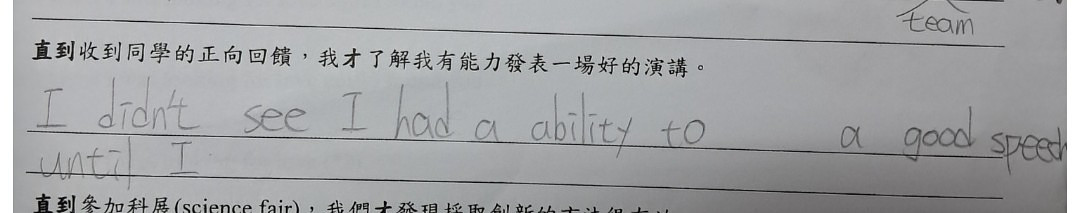 team
直到收到同學的正向回饋，我才了解我有能力發表一場好的演講。
I didn't see I had a ability to a good speech
until I
直到參加科展(science fair)，我們才發現採取創新的方法很有